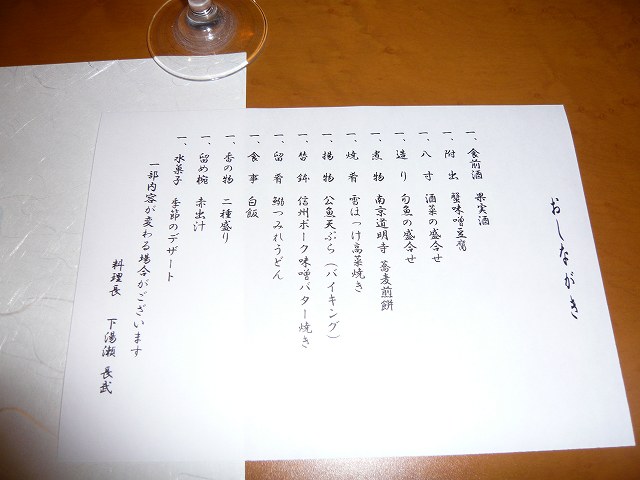 おしながき
一、食前酒 果実酒
一、附出 蟹味噌豆腐
一、八寸 酒菜の盛合せ
一、造り 旬魚の盛合せ
一、煮物 南京道明寺 蕎麦煎餅
一、焼肴 雪ほっけ高菜焼き
一、揚物 公魚天ぷら（バイキング）
一、笞鉢 信州ポーク味噌バター焼き
一、留肴 鰯つみれうどん
一、食事 白飯
一、香の物 二種盛り
一、留め椀 赤出汁
一、水菓子 季節のデザート
一部内容が変わる場合がございます
料理長 下湯瀬 長武